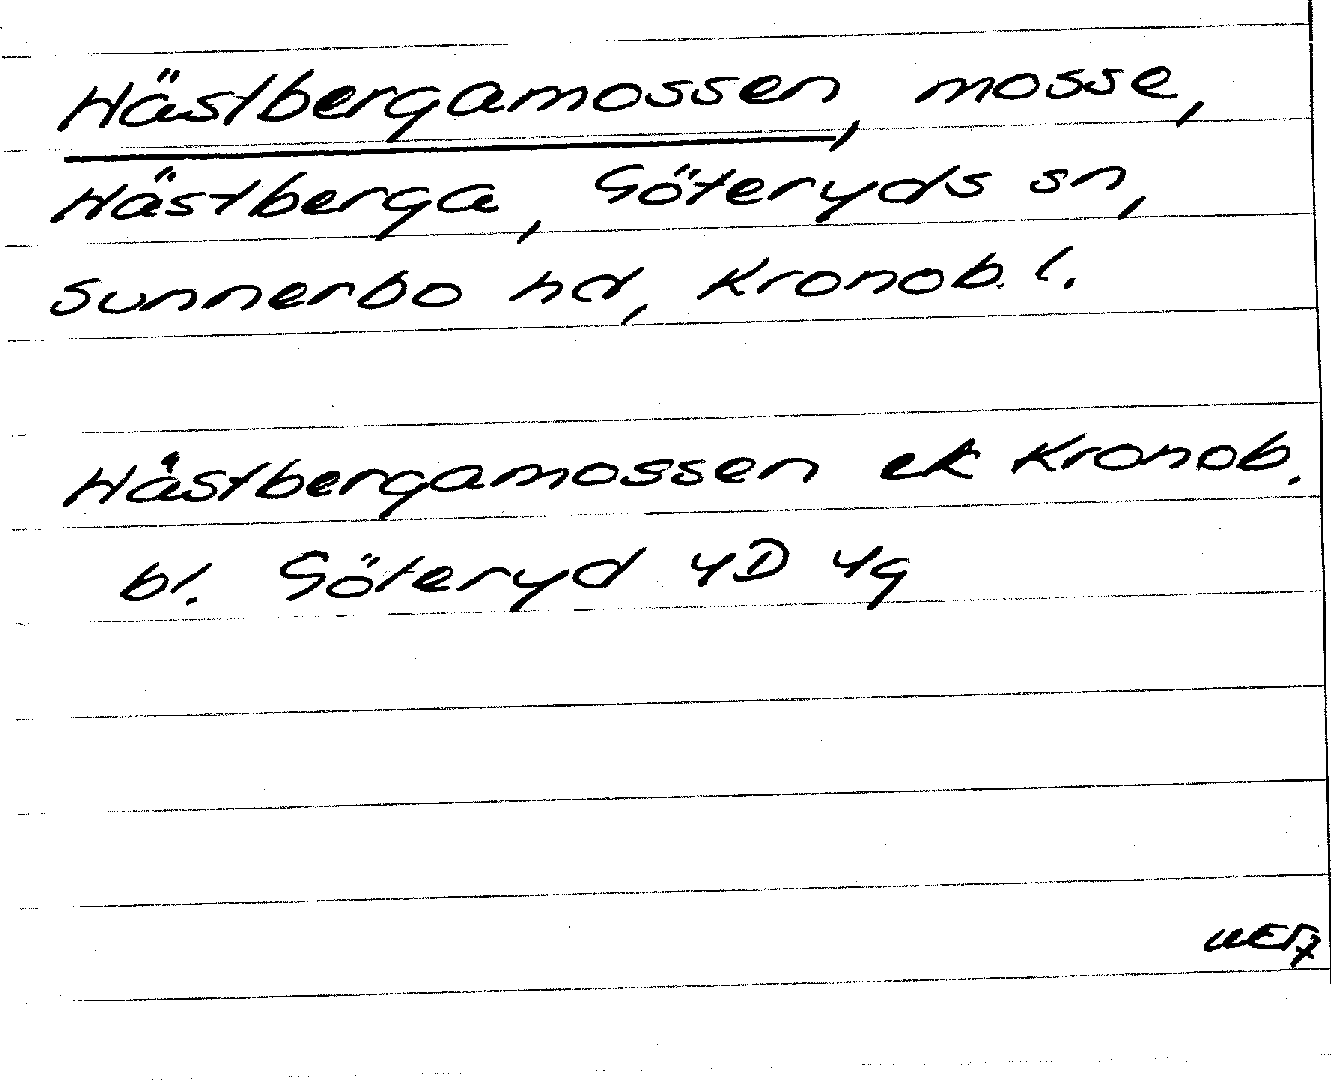 Hästbergamossen, mosse,
Hästberga, Göteryds sn,
Sunnerbo hd, Kronob. l.
Håstbergamossen ek Kronob.
bl. Göteryd 4D 4g